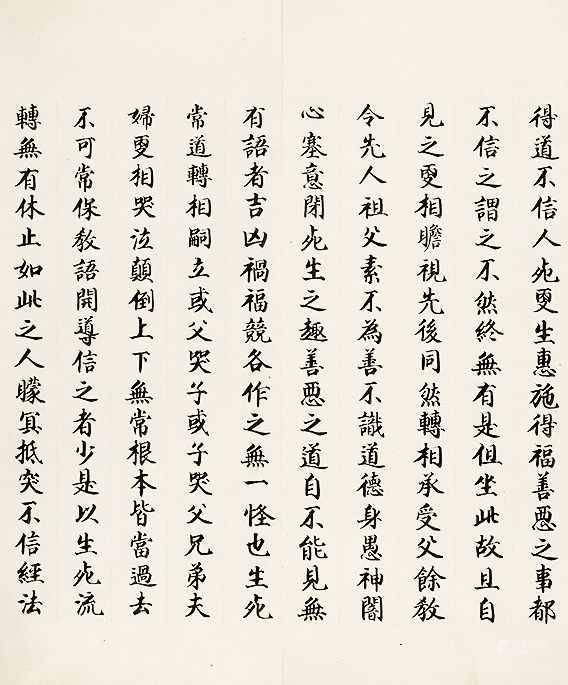 得道不信人死更生惠施得福善惡之事都
不信之謂之不然終無有是但坐此故且自
見之更相瞻視先後同然轉相承受父餘教
令先人祖父素不為善不識道德身愚神闇
心塞意閉死生之趣善惡之道自不能見無
有語者吉凶禍福競各作之無一怪也生死
常道轉相嗣立或父哭子或子哭父兄弟夫
婦更相哭泣顛倒上下無常根本皆當過去
不可常保教語開導信之者少是以生死流
轉無有休止如此之人矇冥抵突不信經法